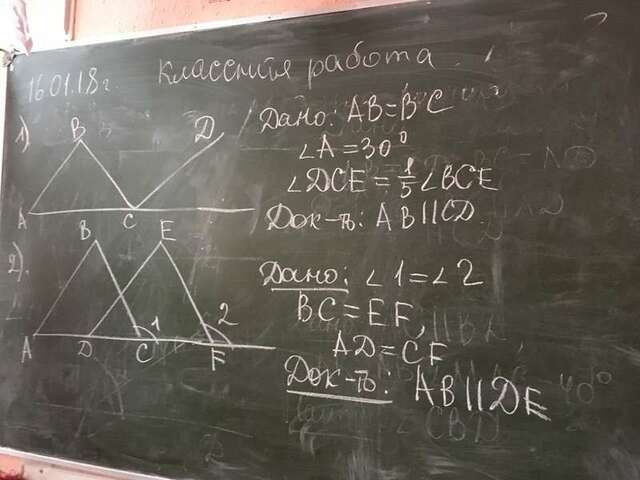 16.01.18г. классная работа
1)
B D
A C
Дано: AB=BC
∠A=30°
∠DCE=1/5∠BCE
Док-ть: AB||CD.
2).
B E
1 2
A D C F
Дано: ∠1=∠2
BC=EF,
AD=CF
Док-ть: AB||DE